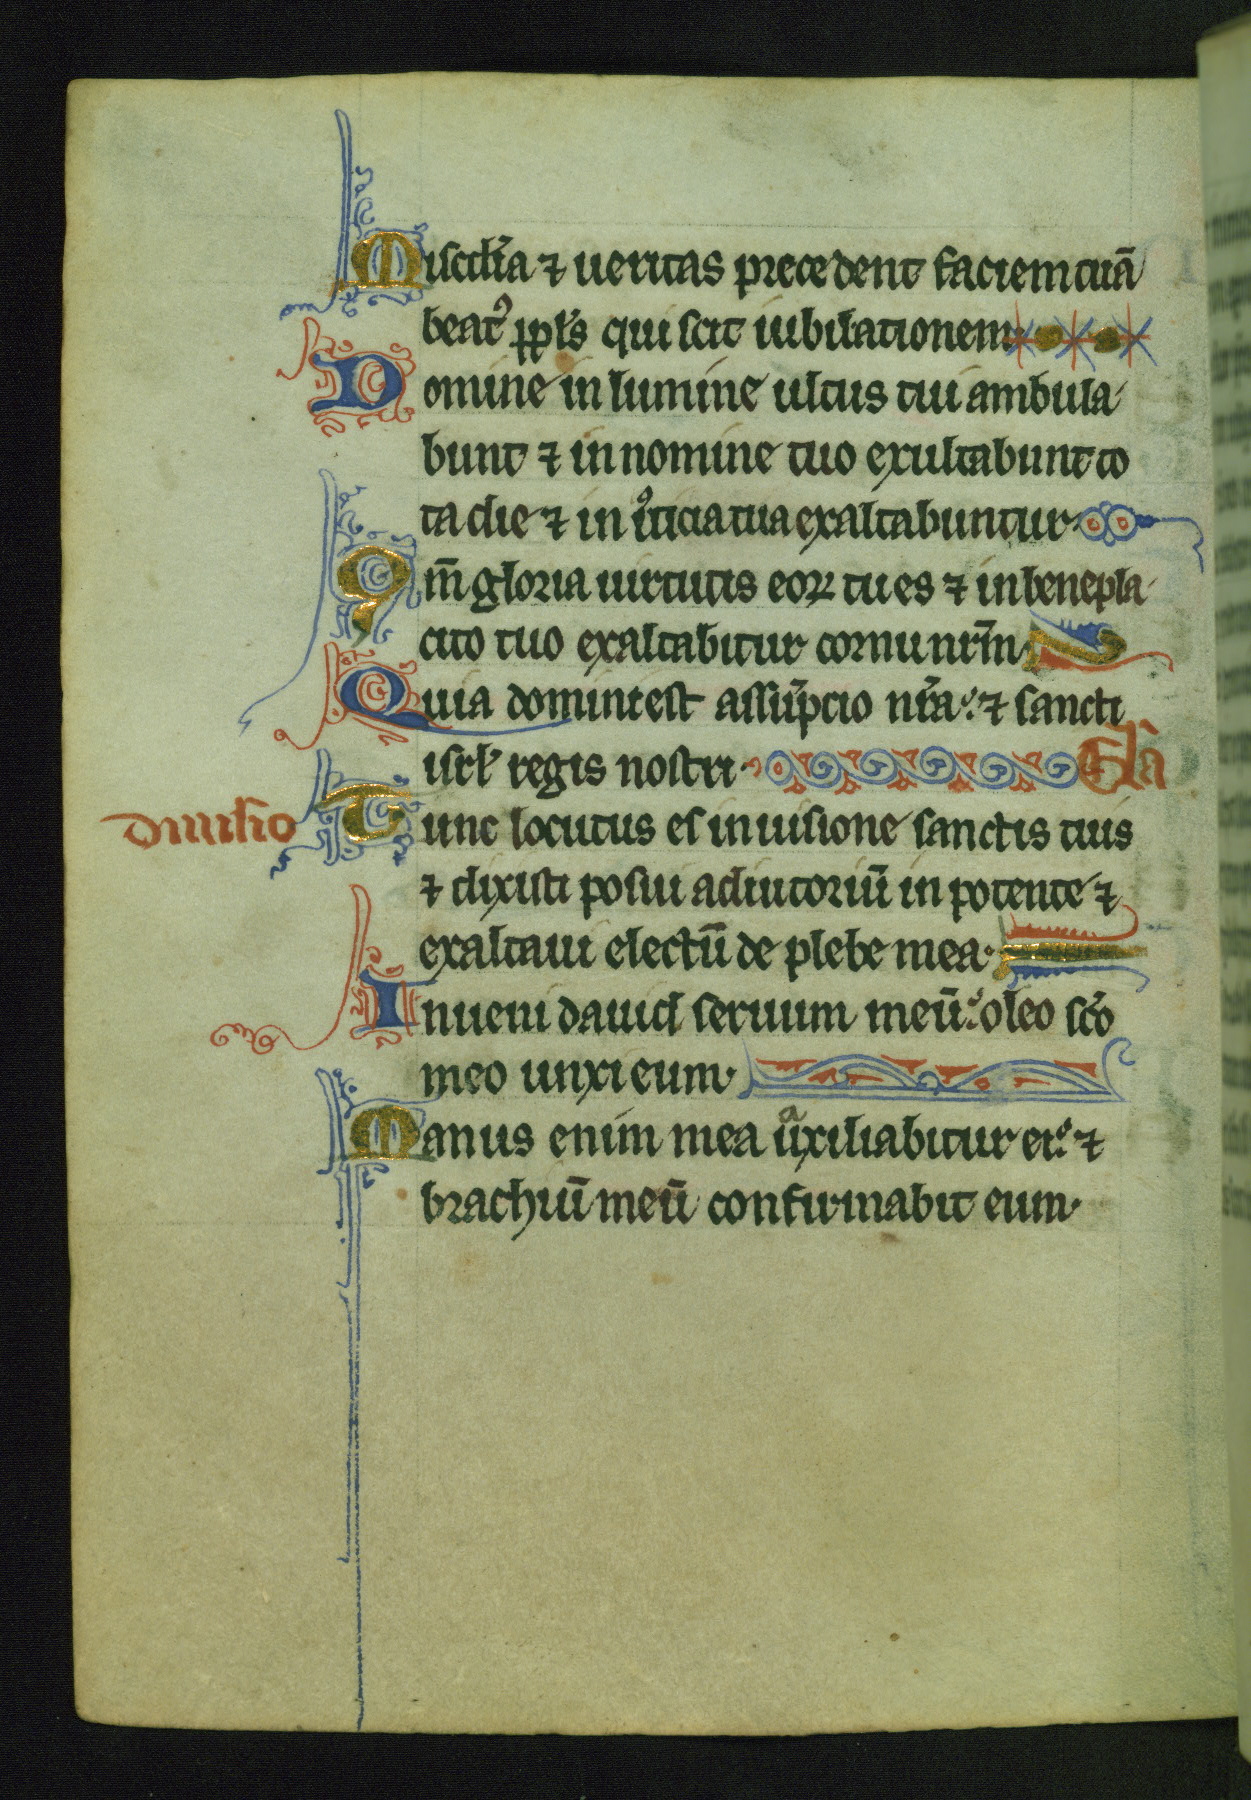 Miscd̄ia ⁊ ueritas precedent faciem tuā
beatꝰ ppl̄s qui scit iubilationem·
Domine in lumine ultus tui ambula
bunt ⁊ in nomine tuo exultabunt to
ta die ⁊ in iꝰticia tua exaltabuntur·
Qm̄ gloria uirtutis eoꝝ tu es ⁊ in benepla
cito tuo exaltabitur cornu nr̄m·
Quia domini est assūpcio nr̄a: ⁊ sancti
isrl̄ regis nostri·
diuisio
Tunc locutus es in uisione sanctis tuis
⁊ dixisti posui adiutoriū in potente ⁊
exaltaui electū de plebe mea·
Inueni dauid seruum meū: oleo sc̄o
meo unxi eum·
Manus enim mea auxiliabitur ei: ⁊
brachiū meū confirmabit eum·